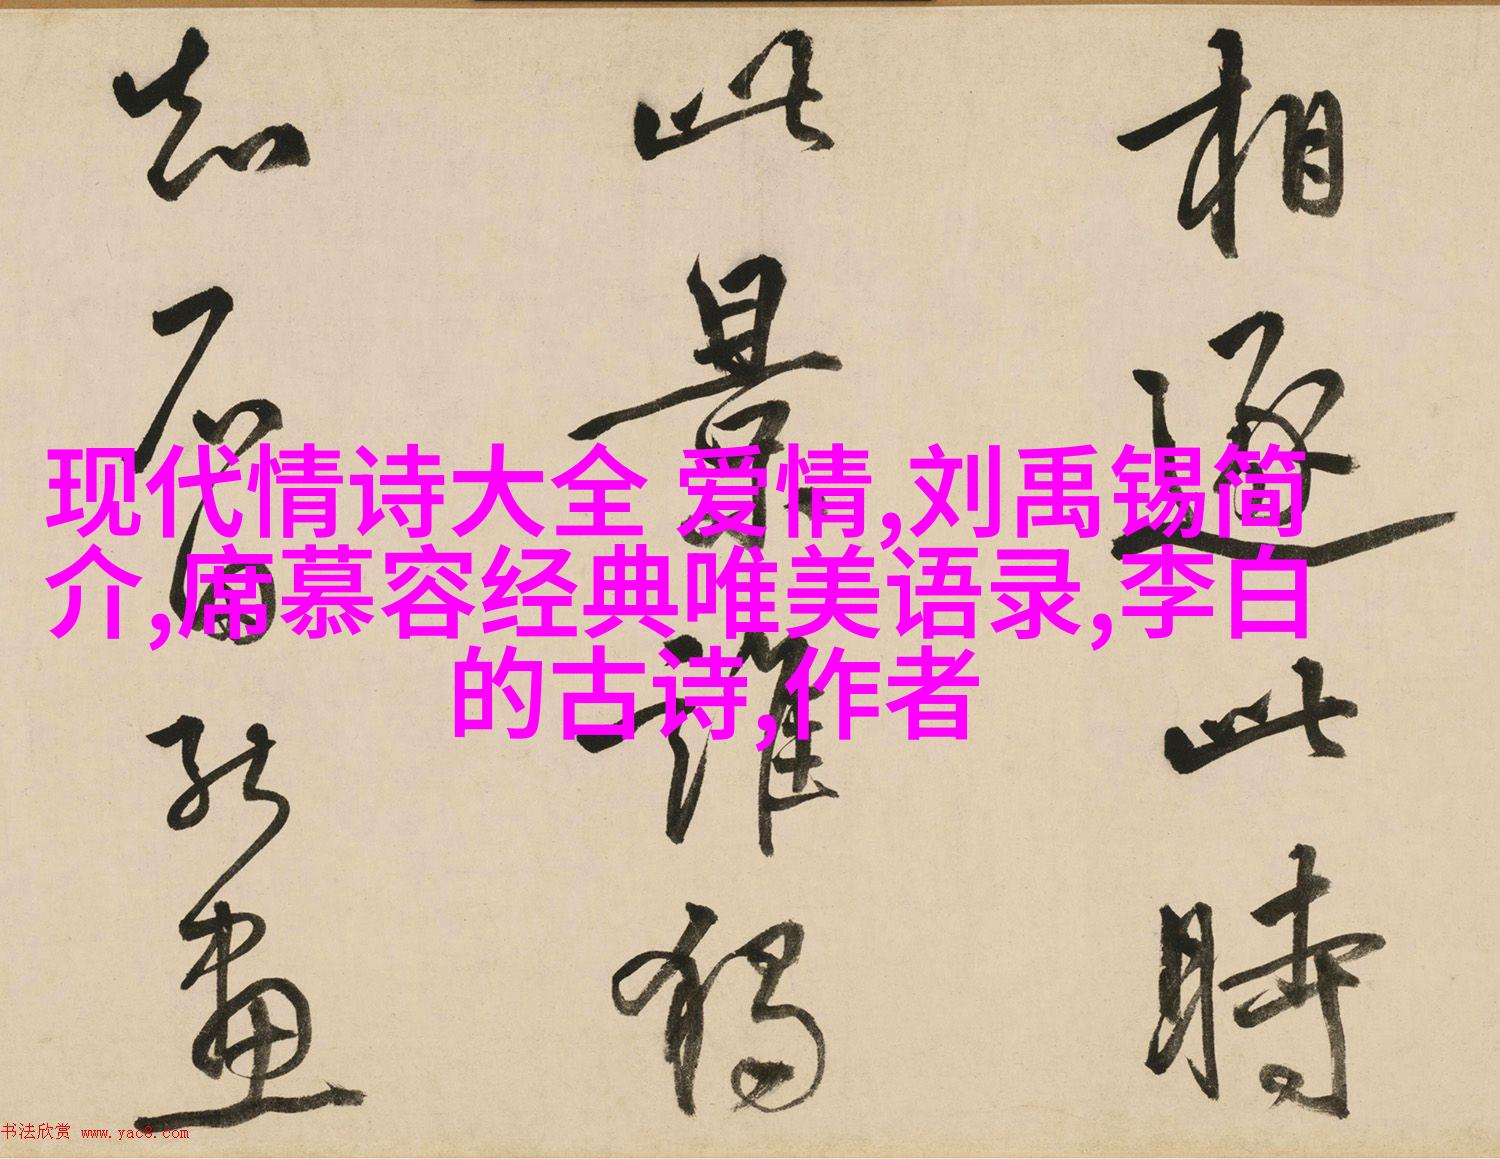 相逐此時
此景誰獨
知畫
现代情诗大全 爱情,刘禹锡简
介,席慕容经典唯美语录,李白
的古诗,作者
书法欣赏 www.yac8.com